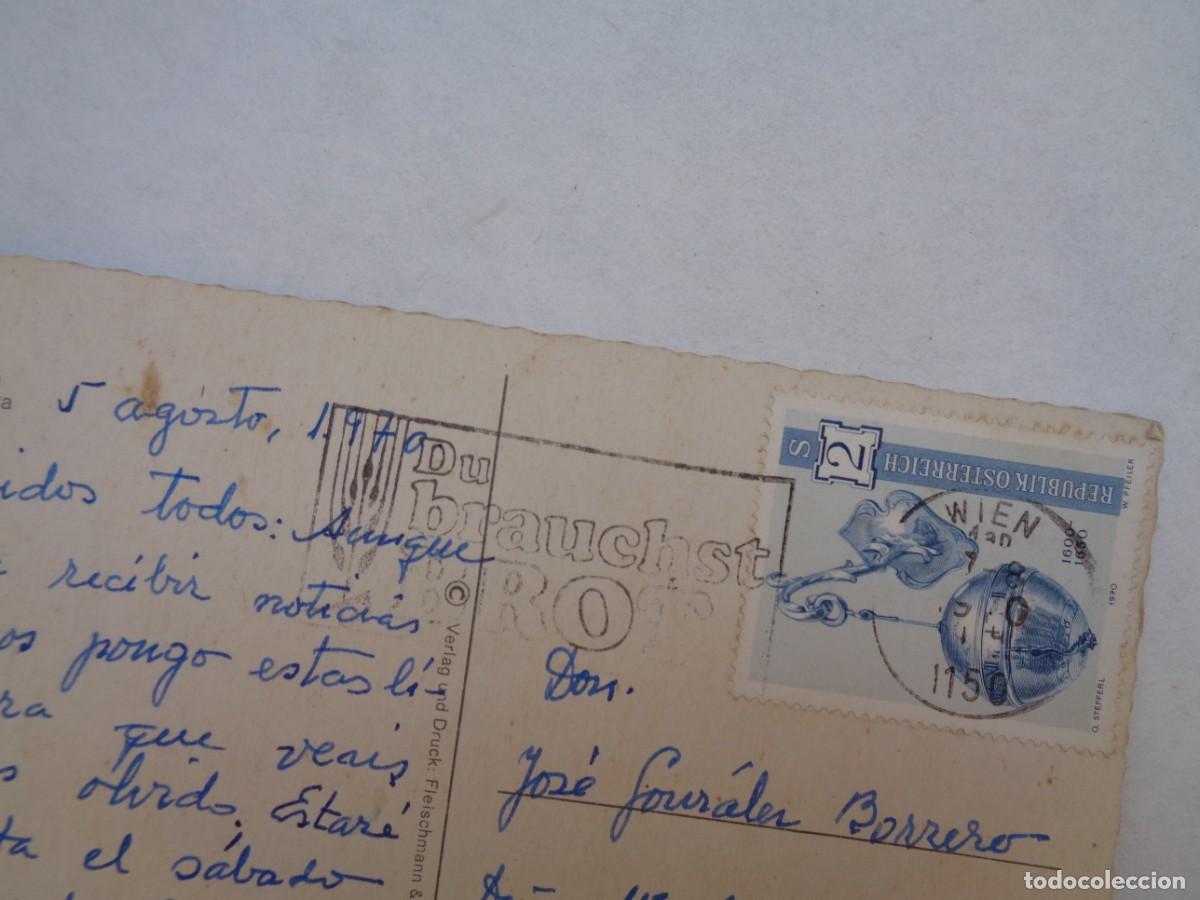 5 agosto, 1.970
idos todos: Aunque
recibir noticias
os pongo estas lí-
ra que veais
s olvido. Estaré
ta el sábado
© Verlag und Druck: Fleischmann &
Du
brauchst
BROT
REPUBLIK ÖSTERREICH
S 2
W. PFEILER
1600-1650
1970
O. STEFFERL
WIEN
1150
Don.
José González Borrero
todocoleccion